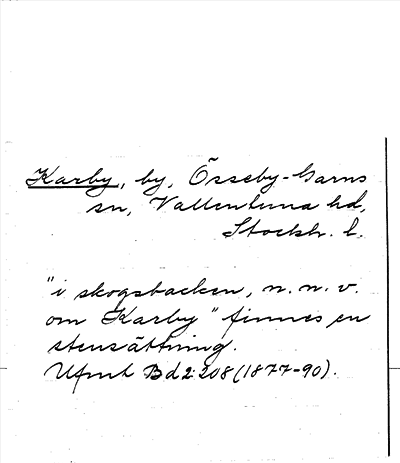 Karby, by, Össeby-Garns
sn, Vallentuna hd,
Stockh. l.
"i skogsbacken, n.n.v.
om Karby" finnes en
stensättning.
Ufmt Bd 2 208 (1877-90).